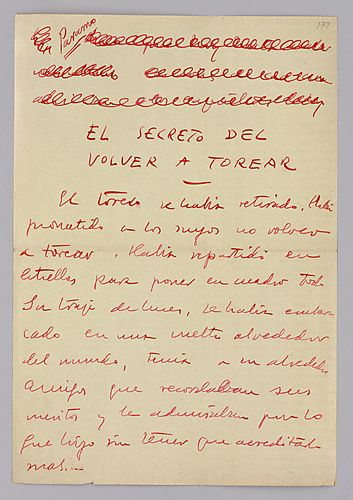 EL SECRETO DEL
VOLVER A TOREAR
El torero se había retirado. Había
prometido a los suyos no volver
a torear. Había repartido en
para poner en cuadro todo
su traje de luces, se había embar
cado en una vuelta alrededor
del mundo, tenía a su alrededor
amigos que recordaban sus
meritos y le admiraban por lo
que hizo sin tener que acreditar
mas....
177